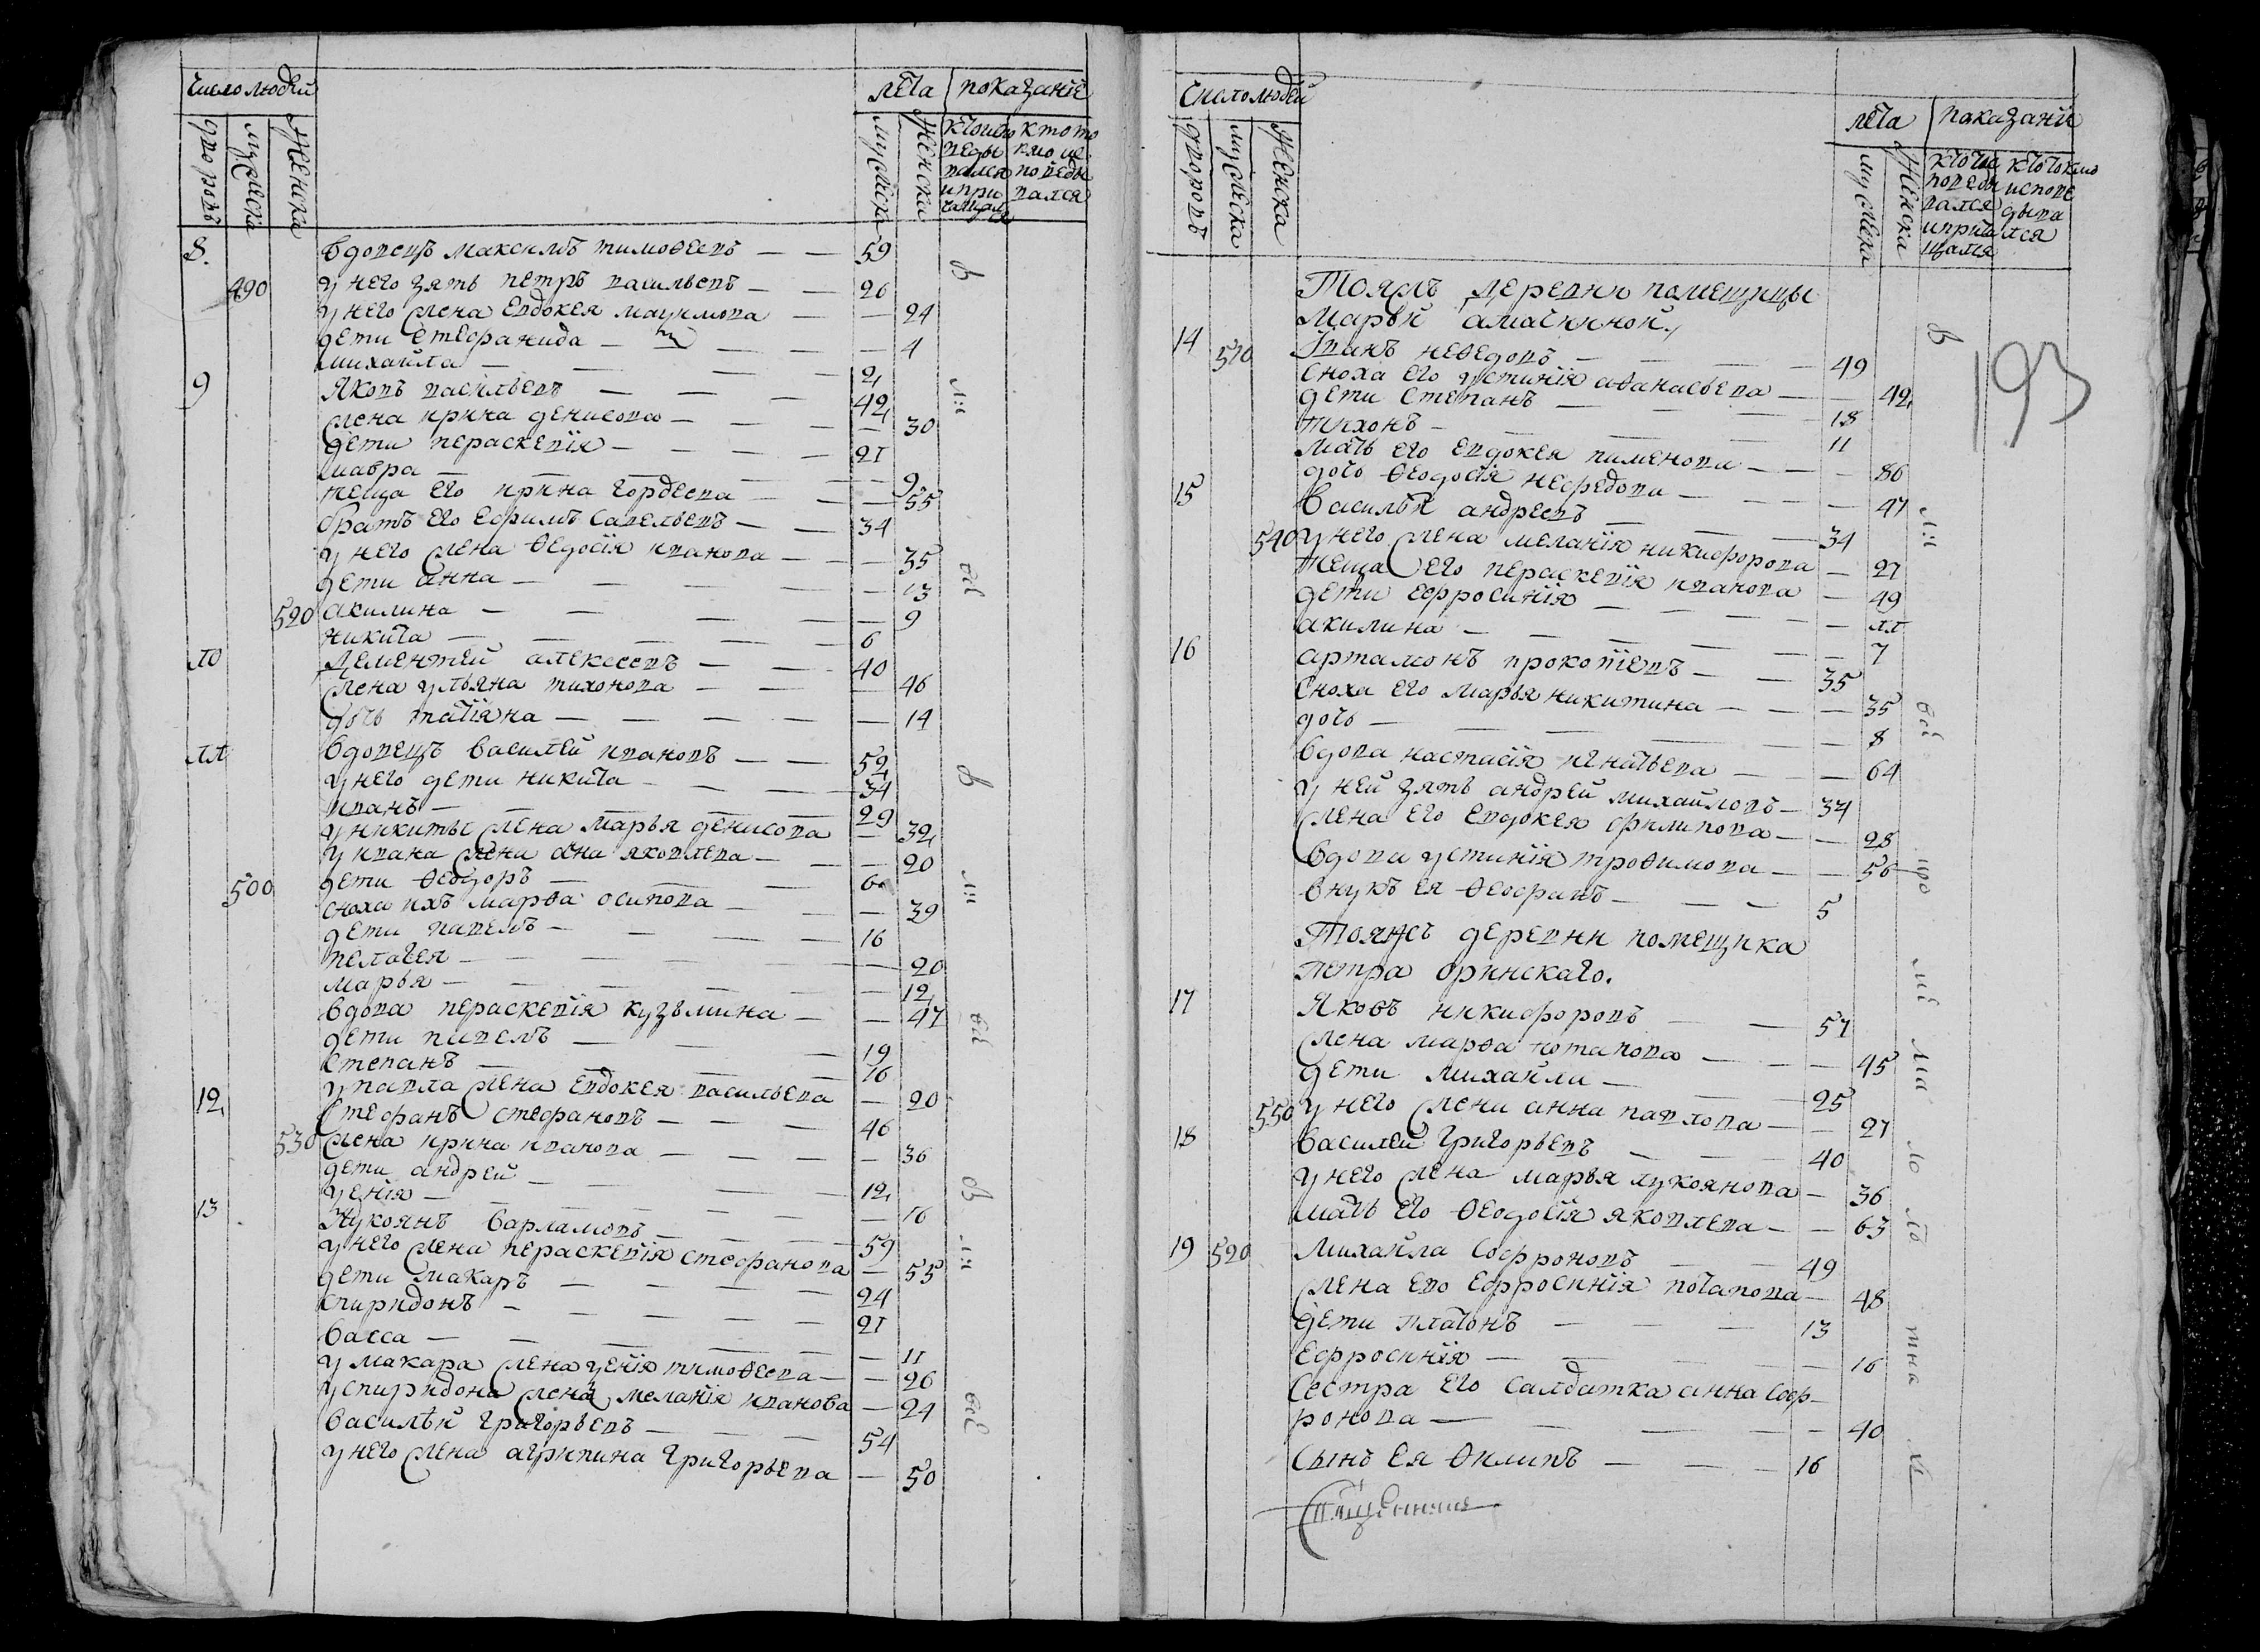 число людей
лета показаніе
дворовъ мужеска женска
мужеска женска
кто испо
веды
вался
и при
чащал
ся
кто то
кмо ис
поведы
вался
8. вдовецъ максимъ тимоѳеевъ — — 59
490 у него зять петръ васильевъ — — 26
у него жена Евдокея маѯимова — — 24
дети стефанида — — — — 4
михайла — — — — 2
9 Яковъ васильевъ — — — 42
жена ирина денисова — — — — 30
дети пераскевія — — — — 21
мавра — — — — 9
теща его ирина гордеева — — — 55
братъ его ефимъ савельевъ — — 34
у него жена ѳедосія иванова — — — 35
дети анна — — — — 13
520 акилина — — — — 9
никита — — — — 6
10 Дементей алексеевъ — — 40
жена ульяна тихонова — — — 46
дочь татіяна — — — — 14
11 вдовецъ василей ивановъ — — 52
у него дети никита — — — 34
иванъ — — — — 29
у никиты жена марья денисова — 32
у ивана жена анна яковлева — — — 20
500 дети ѳеодоръ — — — 6
сноха ихъ марѳа осипова — — — 39
дети павелъ — — — 16
пелагея — — — — 20
марья — — — — 12
вдова пераскевія кузьмина — — 47
дети павелъ — — 19
степанъ — — — 16
у павла жена Евдокея васильева — 20
12 Стефанъ стефановъ — — — 46
530 жена ирина иванова — — — — 36
дети андрей — — — 12
ѯенія — — — — 16
13 Лукоянъ варламовъ — — — 59
у него жена пераскевія стефанова — 55
дети макаръ — — — 24
спиридонъ — — — — 21
васса — — — — 11
у макара жена ѯенія тимоѳеева — — 26
у спиридона жена меланія иванова — 24
василѣй григорьевъ — — — 54
у него жена агрипина григорьева — 50
в
л:і
всѣ
в
л:і
всѣ
в
л:і
всѣ
число людей
лета показаній
дворовъ мужеска женска
мужеска женска
кто ис
поведы
вался
и прича
щался
кто токмо
испове
дыва
лся
193
Тояжъ деревни помещицы
Марьи
14 510 Иванъ неѳедовъ — — — 49
Сноха его устинія аѳанасьева — — 42
дети степанъ — — — 18
тихонъ — — — — 11
мать его евдокея пименова — — — 86
дочь ѳеодосія нефедова — — — 47
15 василѣй андреевъ — — — 34
540 у него жена меланія никифорова — 27
теща его пераскевія иванова — 49
дети ефросинія — — — — 11
акилина — — — — 7
16 артамонъ прокопіевъ — — 35
Сноха его марья никитина — — — 35
дочь — — — — 8
вдова настасія игнатьева — — 64
у ней зять андрей михайловъ — 34
жена его евдокея филипова — — 28
вдова устинія троѳимова — — 56
внукъ ея ѳеофанъ — — — 5
Тояжъ деревни помещика
петра
17 Яковъ никифоровъ — — 57
жена марѳа потапова — — — 45
дети михайла — — 25
550 у него жена анна павлова — — 27
18 василей григорьевъ — — — 40
у него жена марья лукоянова — 36
мать его ѳеодосія яковлева — — 63
19 520 михайла софроновъ — — 49
жена ево ефросинія потапова — 48
дети платонъ — — — 13
ефросинія — — — — 16
сестра его салдатка анна соф-
ронова — — — — 40
сынъ ея ѳилипъ — — — 16
в
л:і
всѣ